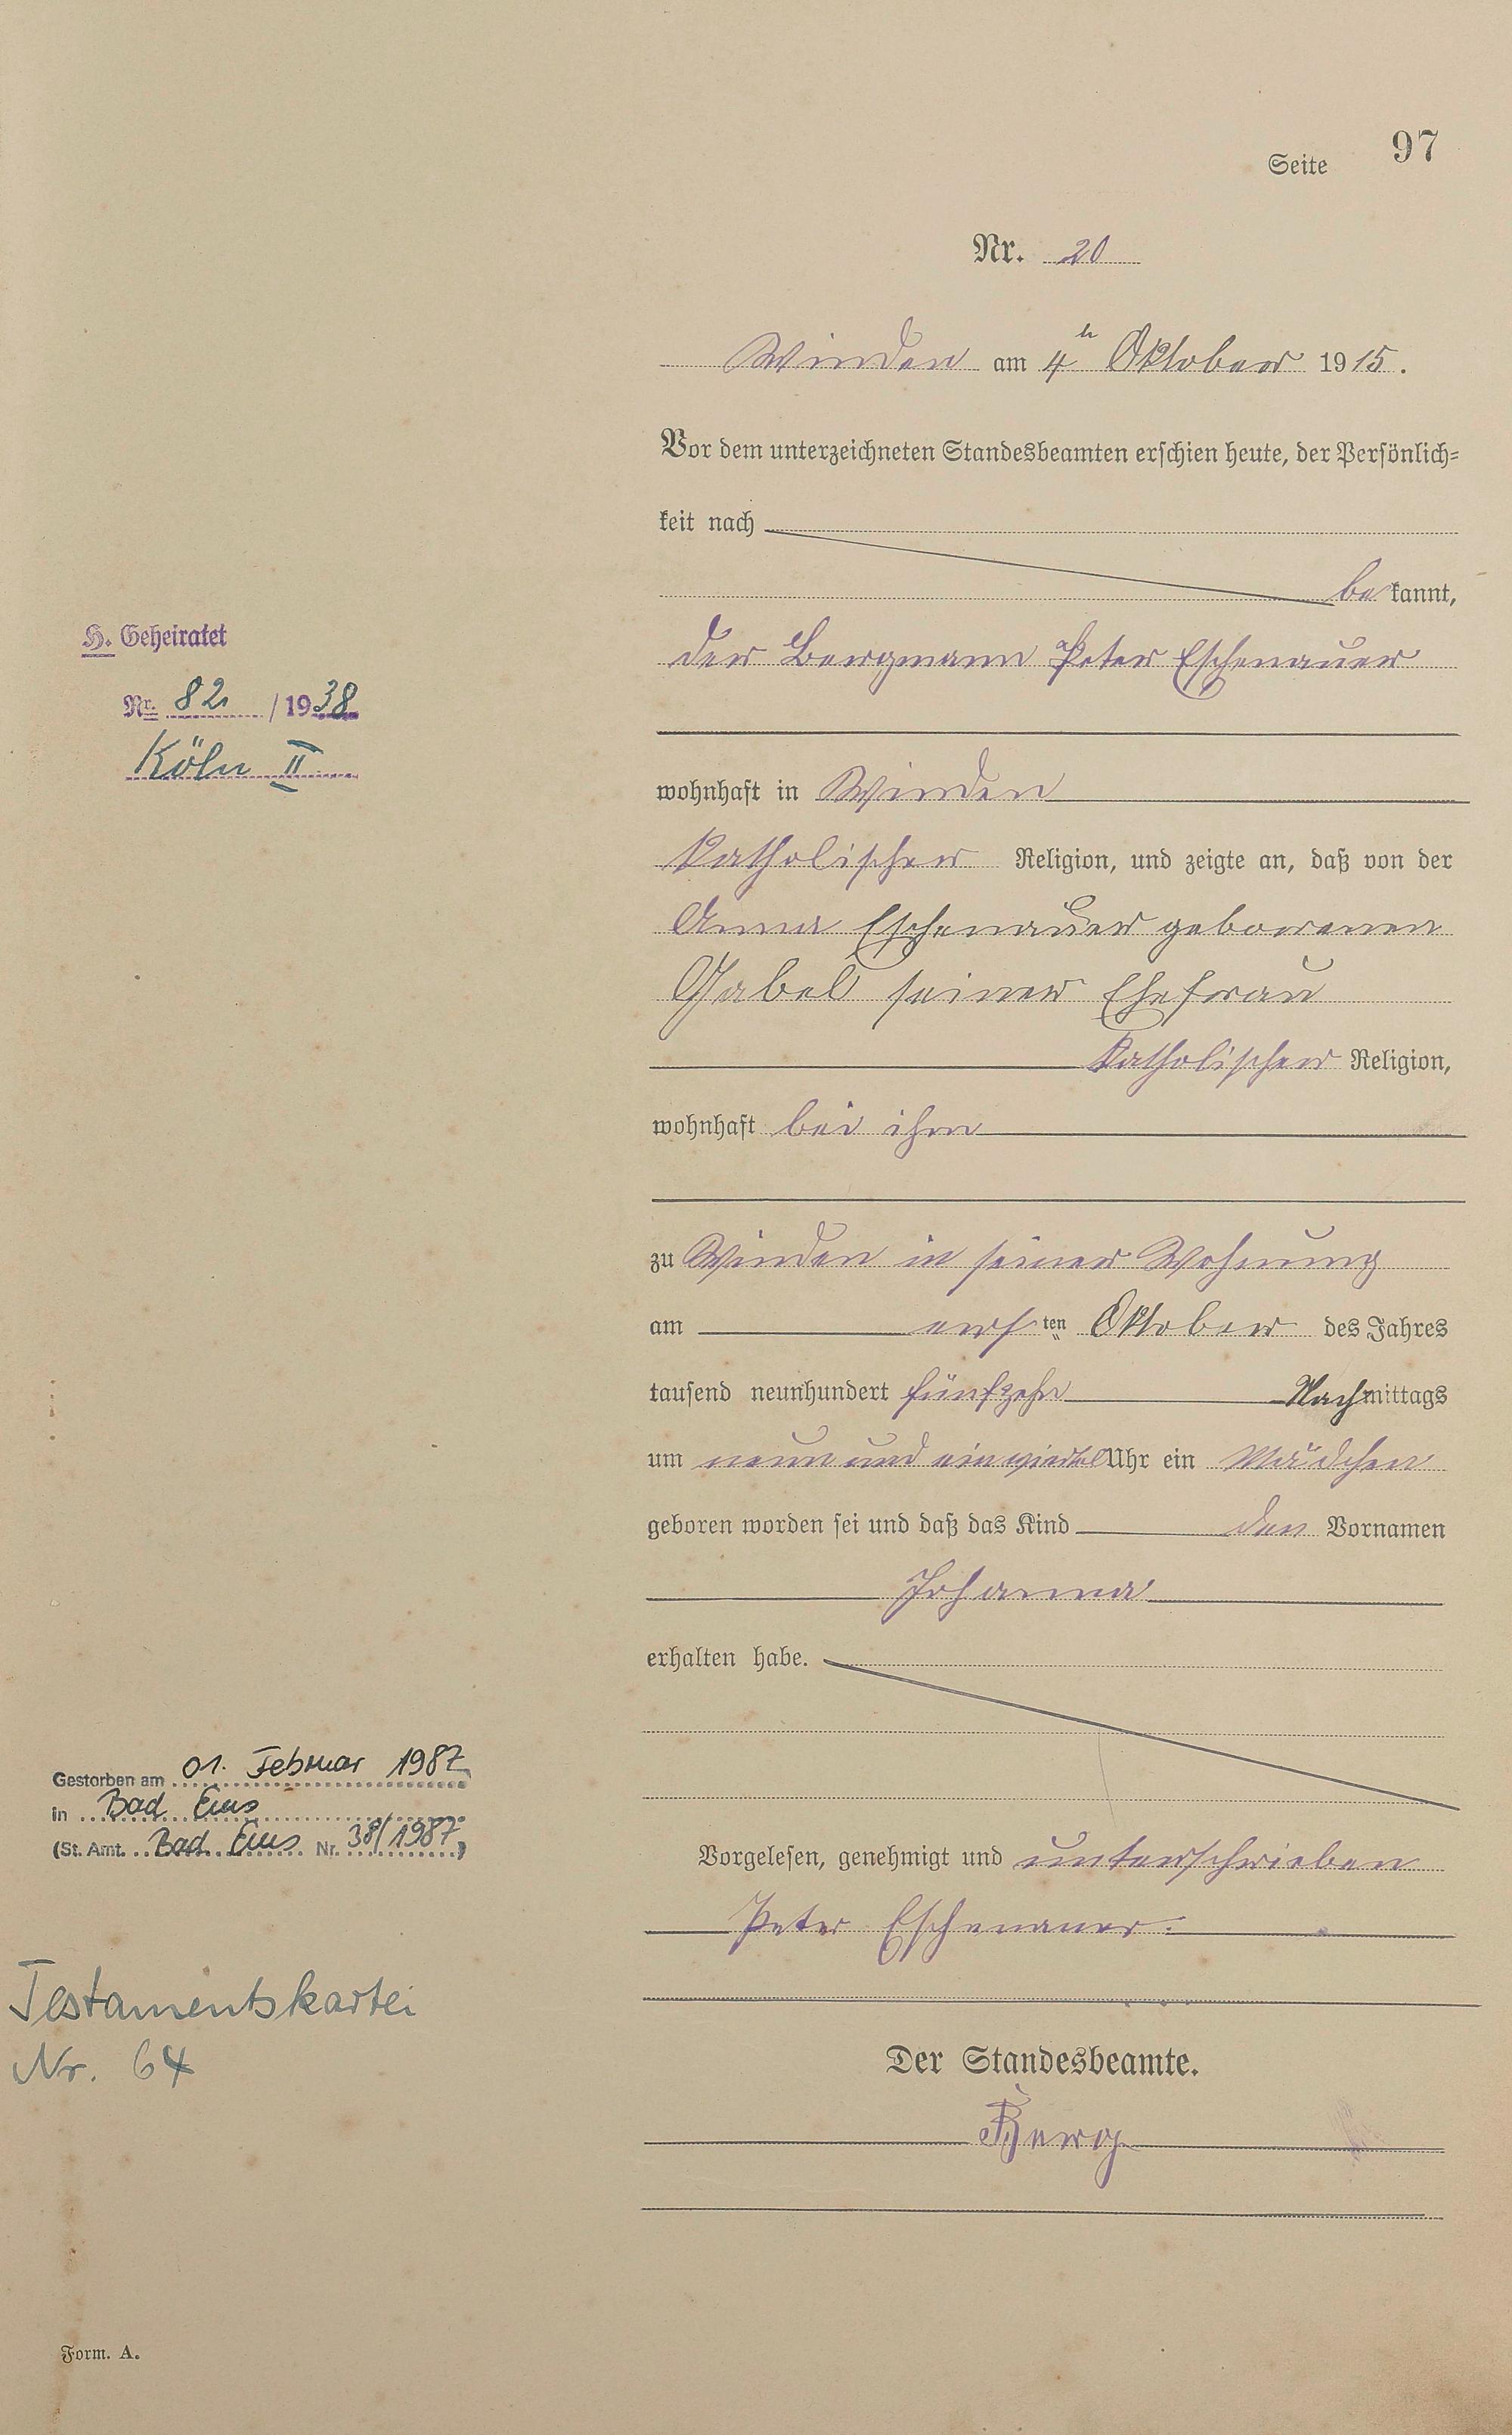 Seite 97
Nr. 20
Winden am 4ten Oktober 1915.
Vor dem unterzeichneten Standesbeamten erschien heute, der Persönlich=
keit nach
be kannt,
der Bergmann Peter Eschenauer
wohnhaft in Winden
katholischer Religion, und zeigte an, daß von der
Anna Eschenauer geborenen
Gabel seiner Ehefrau
katholischer Religion,
wohnhaft bei ihm
zu Winden in seiner Wohnung
am ersten Oktober des Jahres
tausend neunhundert fünfzehn Nachmittags
um neun und ein viertel Uhr ein Mädchen
geboren worden sei und daß das Kind den Vornamen
Johanna
erhalten habe.
Vorgelesen, genehmigt und unterschrieben
Peter Eschenauer.
Der Standesbeamte.
H. Geheiratet
Nr. 82 / 1938
Köln II
Gestorben am 01. Februar 1987
in Bad Ems
(St. Amt. Bad Ems Nr. 38/1987)
Testamentskartei
Nr. 64
Form. A.